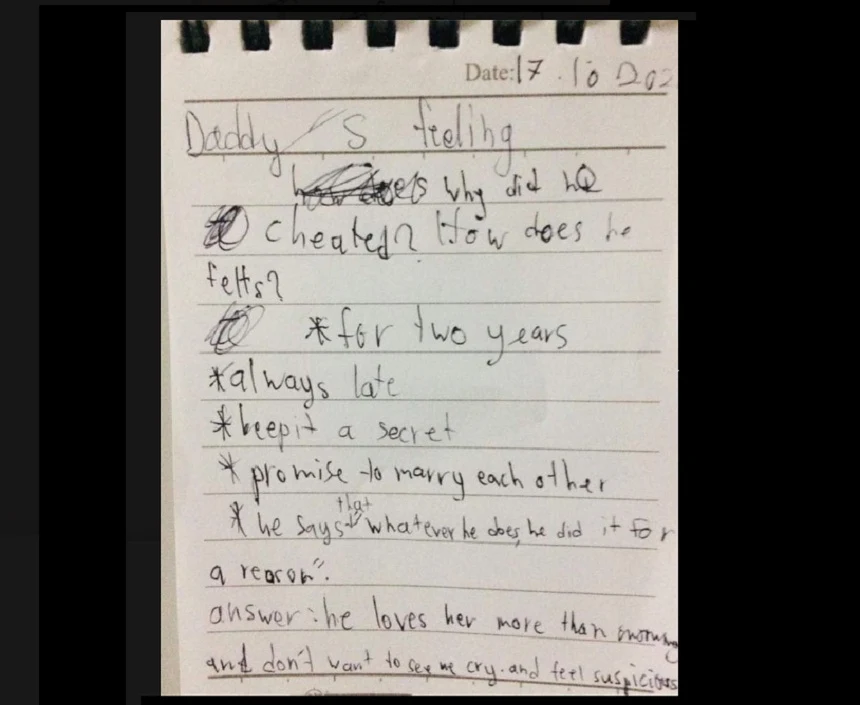 Date: 17.10 202
Daddy's feeling
why did he
cheated? How does he
felts?
*for two years
*always late
*keep it a secret
*promise to marry each other
that
*he says "whatever he does, he did it for
a reason".
answer: he loves her more than
and don't want to see me cry. and feel suspicious